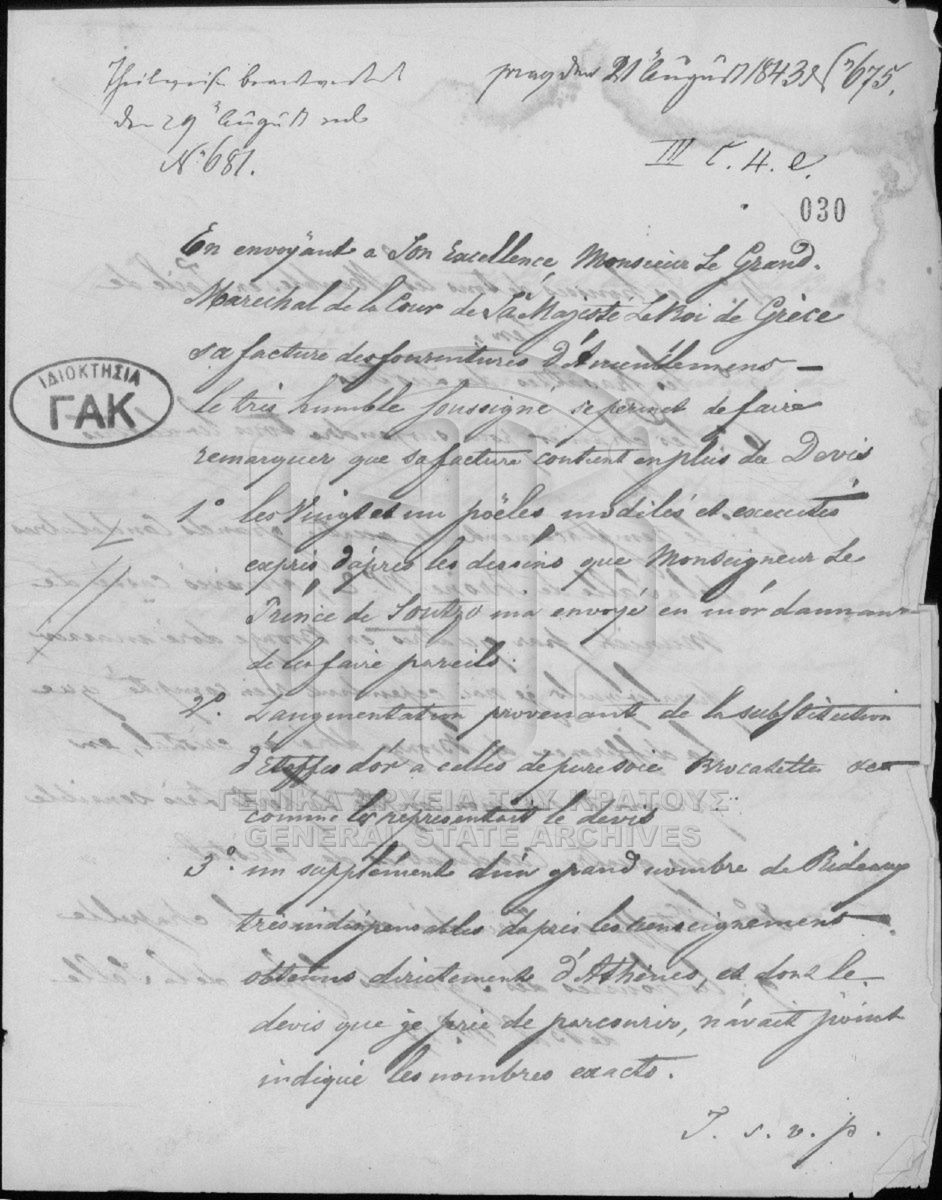 Theilweise beantwortet
den 29 August
N° 681.
den 21 August 1843 N° 675.
III C. 4. e.
030
En envoyant a Son Excellence Monsieur Le Grand.
Maréchal de la Cour de Sa Majesté Le Roi de Grèce
sa facture des fournitures d'Ameublemens —
Le très humble soussigné se permet de faire
remarquer que sa facture contient en plus du Devis
1° les Vingt et un poëles modelés et executés
exprès d'après les dessins que Monseigneur Le
Prince de Soutzo m'a envoyé en m'ordonnant
de les faire pareils.
2° L'augmentation provenant de la substitution
d'Etoffes d'or a celles de pure soie Brocatelle &c
comme les représentait le devis
3° un supplément d'un grand nombre de Rideaux
très indispensables d'après les renseignemens
obtenus directement d'Athènes, et dont le
devis que je prie de parcourir, n'avait point
indiqué les nombres exacts.
T. s. v. p.
ΙΔΙΟΚΤΗΣΙΑ
ΓΑΚ
ΓΕΝΙΚΑ ΑΡΧΕΙΑ ΤΟΥ ΚΡΑΤΟΥΣ
GENERAL STATE ARCHIVES